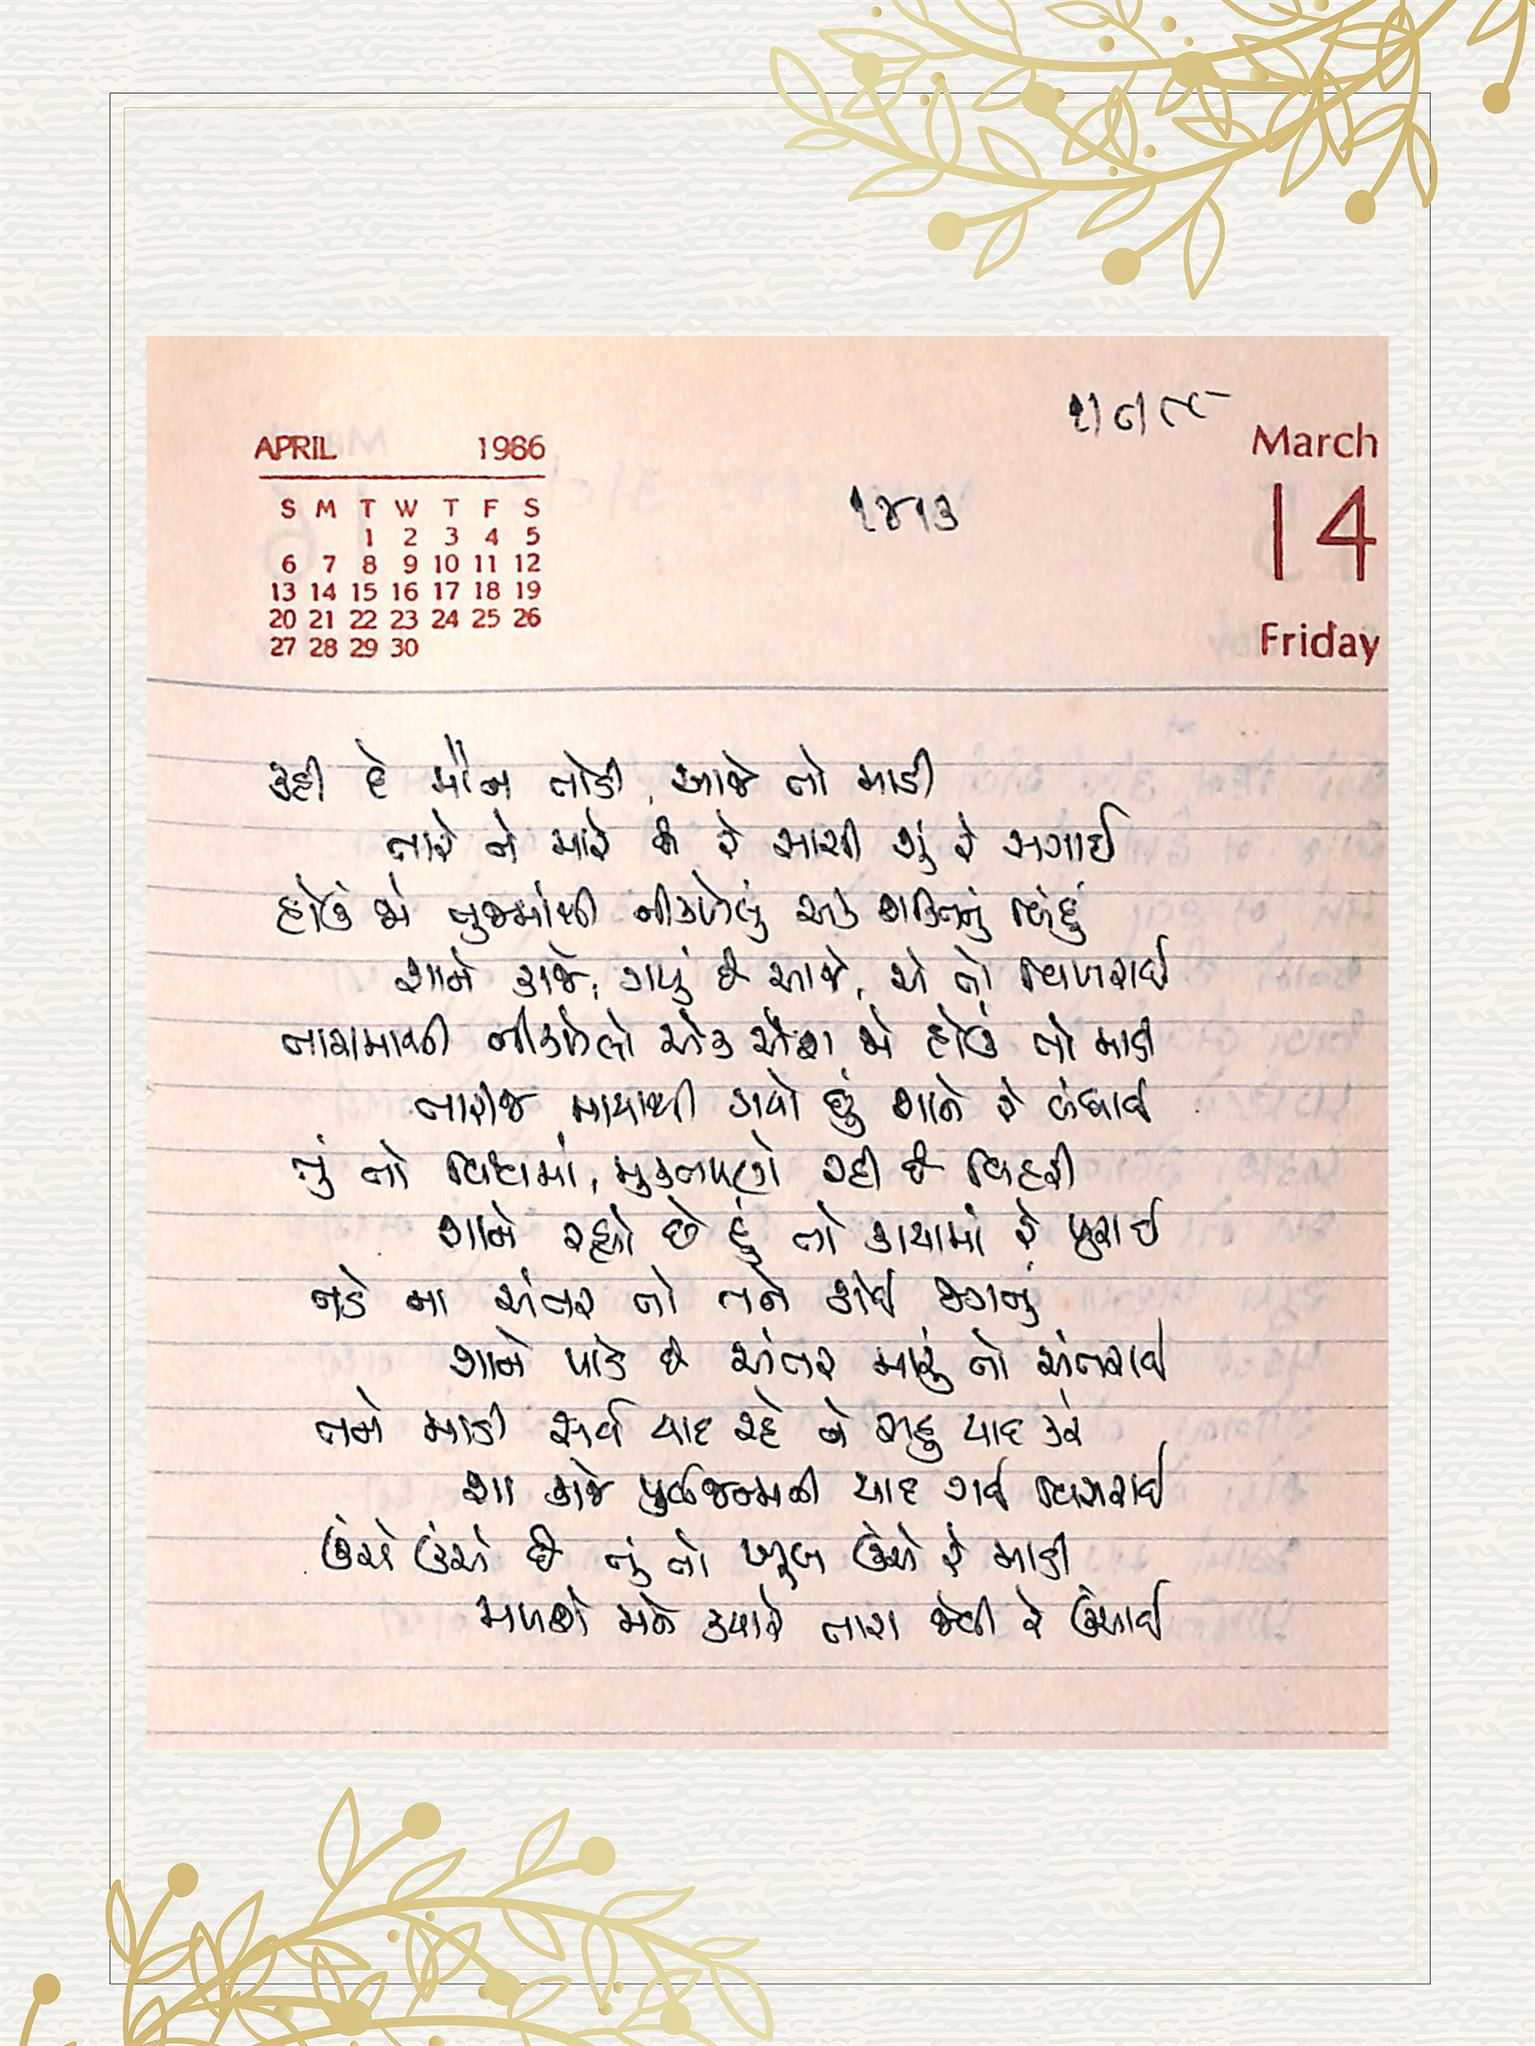 APRIL 1986
S M T W T F S
1 2 3 4 5
6 7 8 9 10 11 12
13 14 15 16 17 18 19
20 21 22 23 24 25 26
27 28 29 30
March
14
Friday
૧૪૧૩
કહી દે મૌન તોડી, આજે તો માડી
તારી ને મારી છે રે સાચી શું રે સગાઈ
હોઉં જો તુજમાંથી નીકળેલું એક શક્તિનું બિંદુ
શાને કાજે, ગયું છે આજે, એ તો વિખરાઈ
તારામાંથી નીકળેલો એક અંશ જો હોઉં તો માડી
તારીજ માયાથી ગયો છું શાને રે બંધાઈ
તું તો વિશ્વમાં, મુક્તપણે રહી છે વિહરી
શાને રહ્યો છે હું તો કાયામાં રે પુરાઈ
નડે ના અંતર તો તને કોઈ જગનું
શાને પાડે છે અંતર મારું તો અંતરાઈ
તને માડી સર્વ યાદ રહે ને સહુ યાદ કરે
શા કાજે પુર્વજન્મની યાદ ગઈ વિસરાઈ
ઉંચે ઉંચે છે તું તો ખૂબ ઉંચે રે માડી
મળશે મને ક્યારે તારા જેવી રે ઉંચાઈ